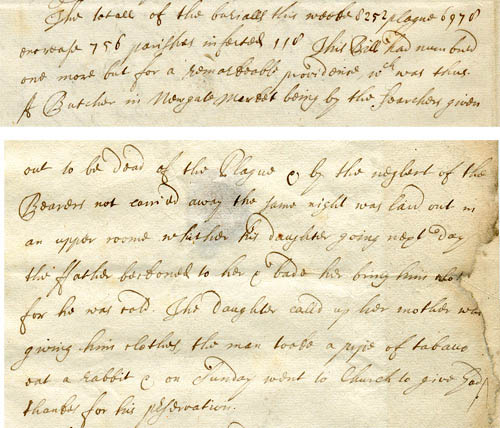 The totall of the burialls this weeke 8252 plague 6978
encrease 756 parishes infected 118 This Bill had numbred
one more but for a remarkeable providence wch was thus.
A Butcher in Newgate Market being by the searchers given
out to be dead of the Plague & by the neglect of the
Bearers not carried away the same night was laid out in
an upper roome whither his daughter going next day
the ffather beckoned to her & bade her bring him
for he was cold. The daughter calld up her mother who
giving him clothes, the man tooke a pipe of tabacco
eat a rabbit & on Sunday went to Church to give God
thankes for his pservation.